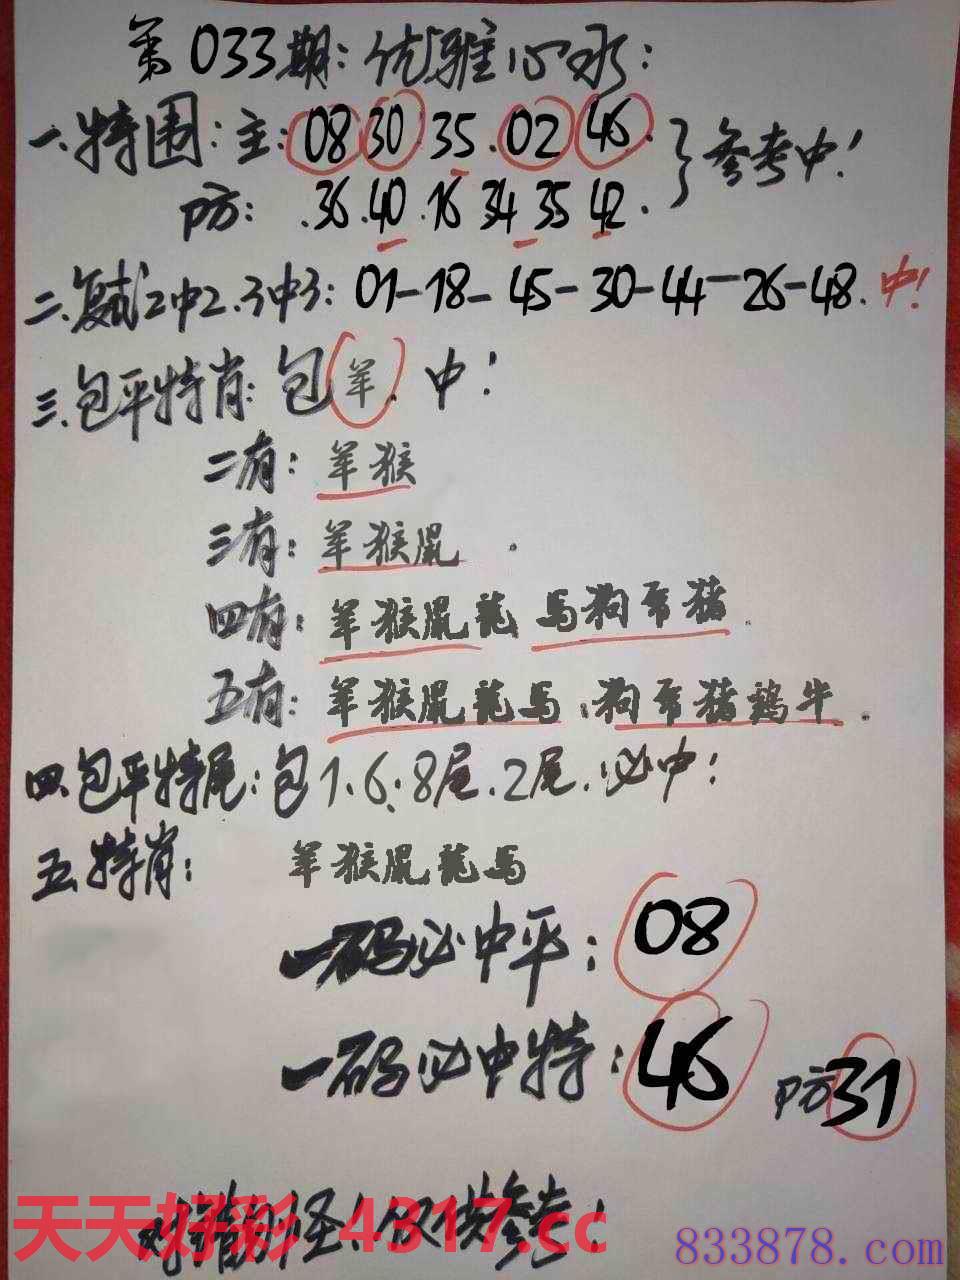 第033期：优雅心水：
一.特围：主：08 30 35. 02 46. }参考中！
防：.36.40.16 34 35 42.
二.复试2中2.3中3：01-18-45-30-44-26-48.中！
三.包平特肖：包羊.中！
二有：羊猴
三有：羊猴鼠.
四有：羊猴鼠龍 馬狗豬.
五有：羊猴鼠龍馬.狗豬鷄牛.
四.包平特尾：包1.6.8尾.2尾.必中！
五.特肖：羊猴鼠龍馬
一码必中平：08
一码必中特：46 防31
对错勿怪！仅供参考！
天天好彩 4317.cc
833878.com